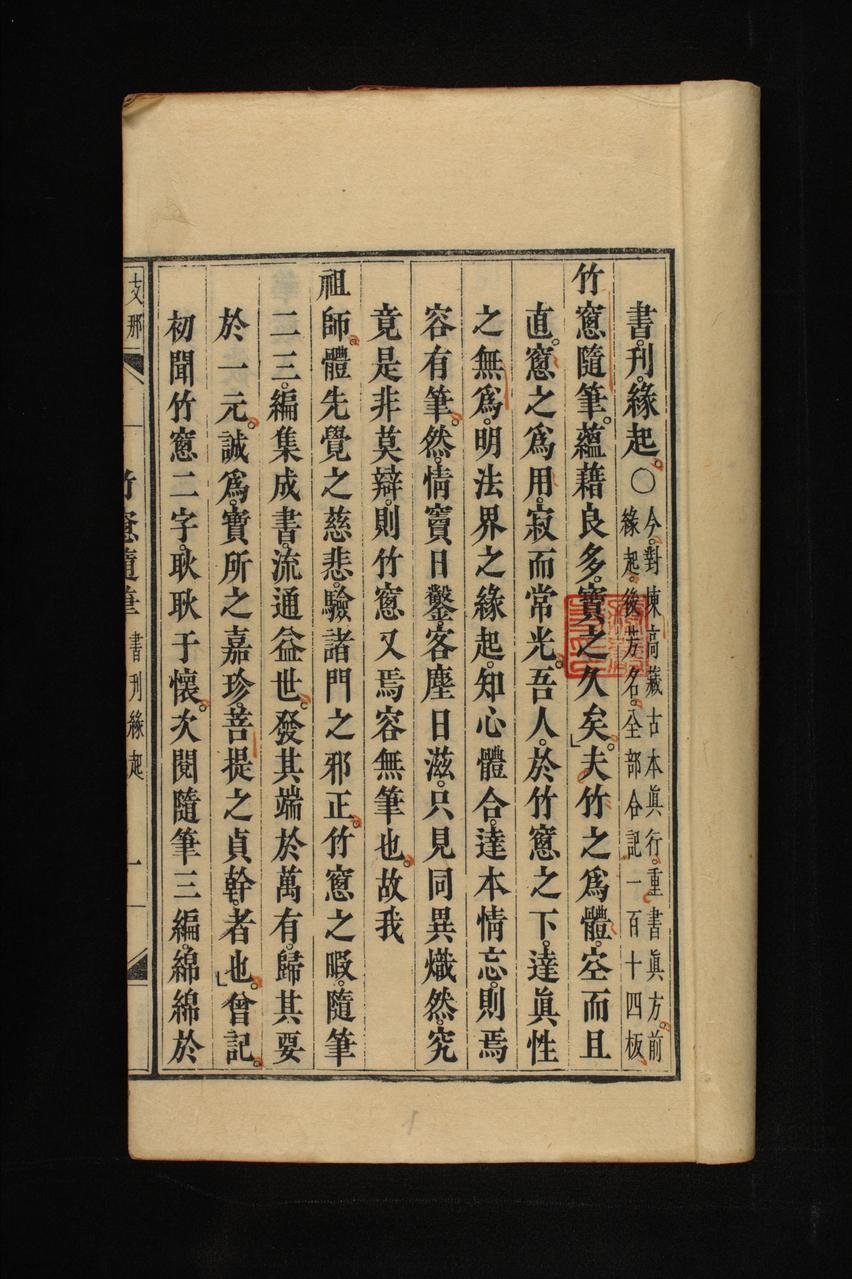 書。刊。緣起。○今。對揀高藏古本眞行。重書眞方。前
緣起。後芳名。全部合記一百十四板。
竹窻隨筆。蘊藉良多。寶之久矣。夫竹之爲體。空而且
直。窻之爲用。寂而常光。吾人。於竹窻之下。達眞性
之無爲。明法界之緣起。知心體合。達本情忘。則焉
容有筆。然。情竇日鑿。客塵日滋。只見同異熾然。究
竟是非莫辯。則竹窻又焉容無筆也。故我
祖師。體先覺之慈悲。驗諸門之邪正。竹窻之暇。隨筆
二三。編集成書。流通益世。發其端於萬有。歸其要
於一元。誠爲。寶所之嘉珍。菩提之貞幹。者也。曾記。
初聞竹窻二字。耿耿于懷。次閱隨筆三編。綿綿於
支那
竹窻隨筆
書刊緣起
一